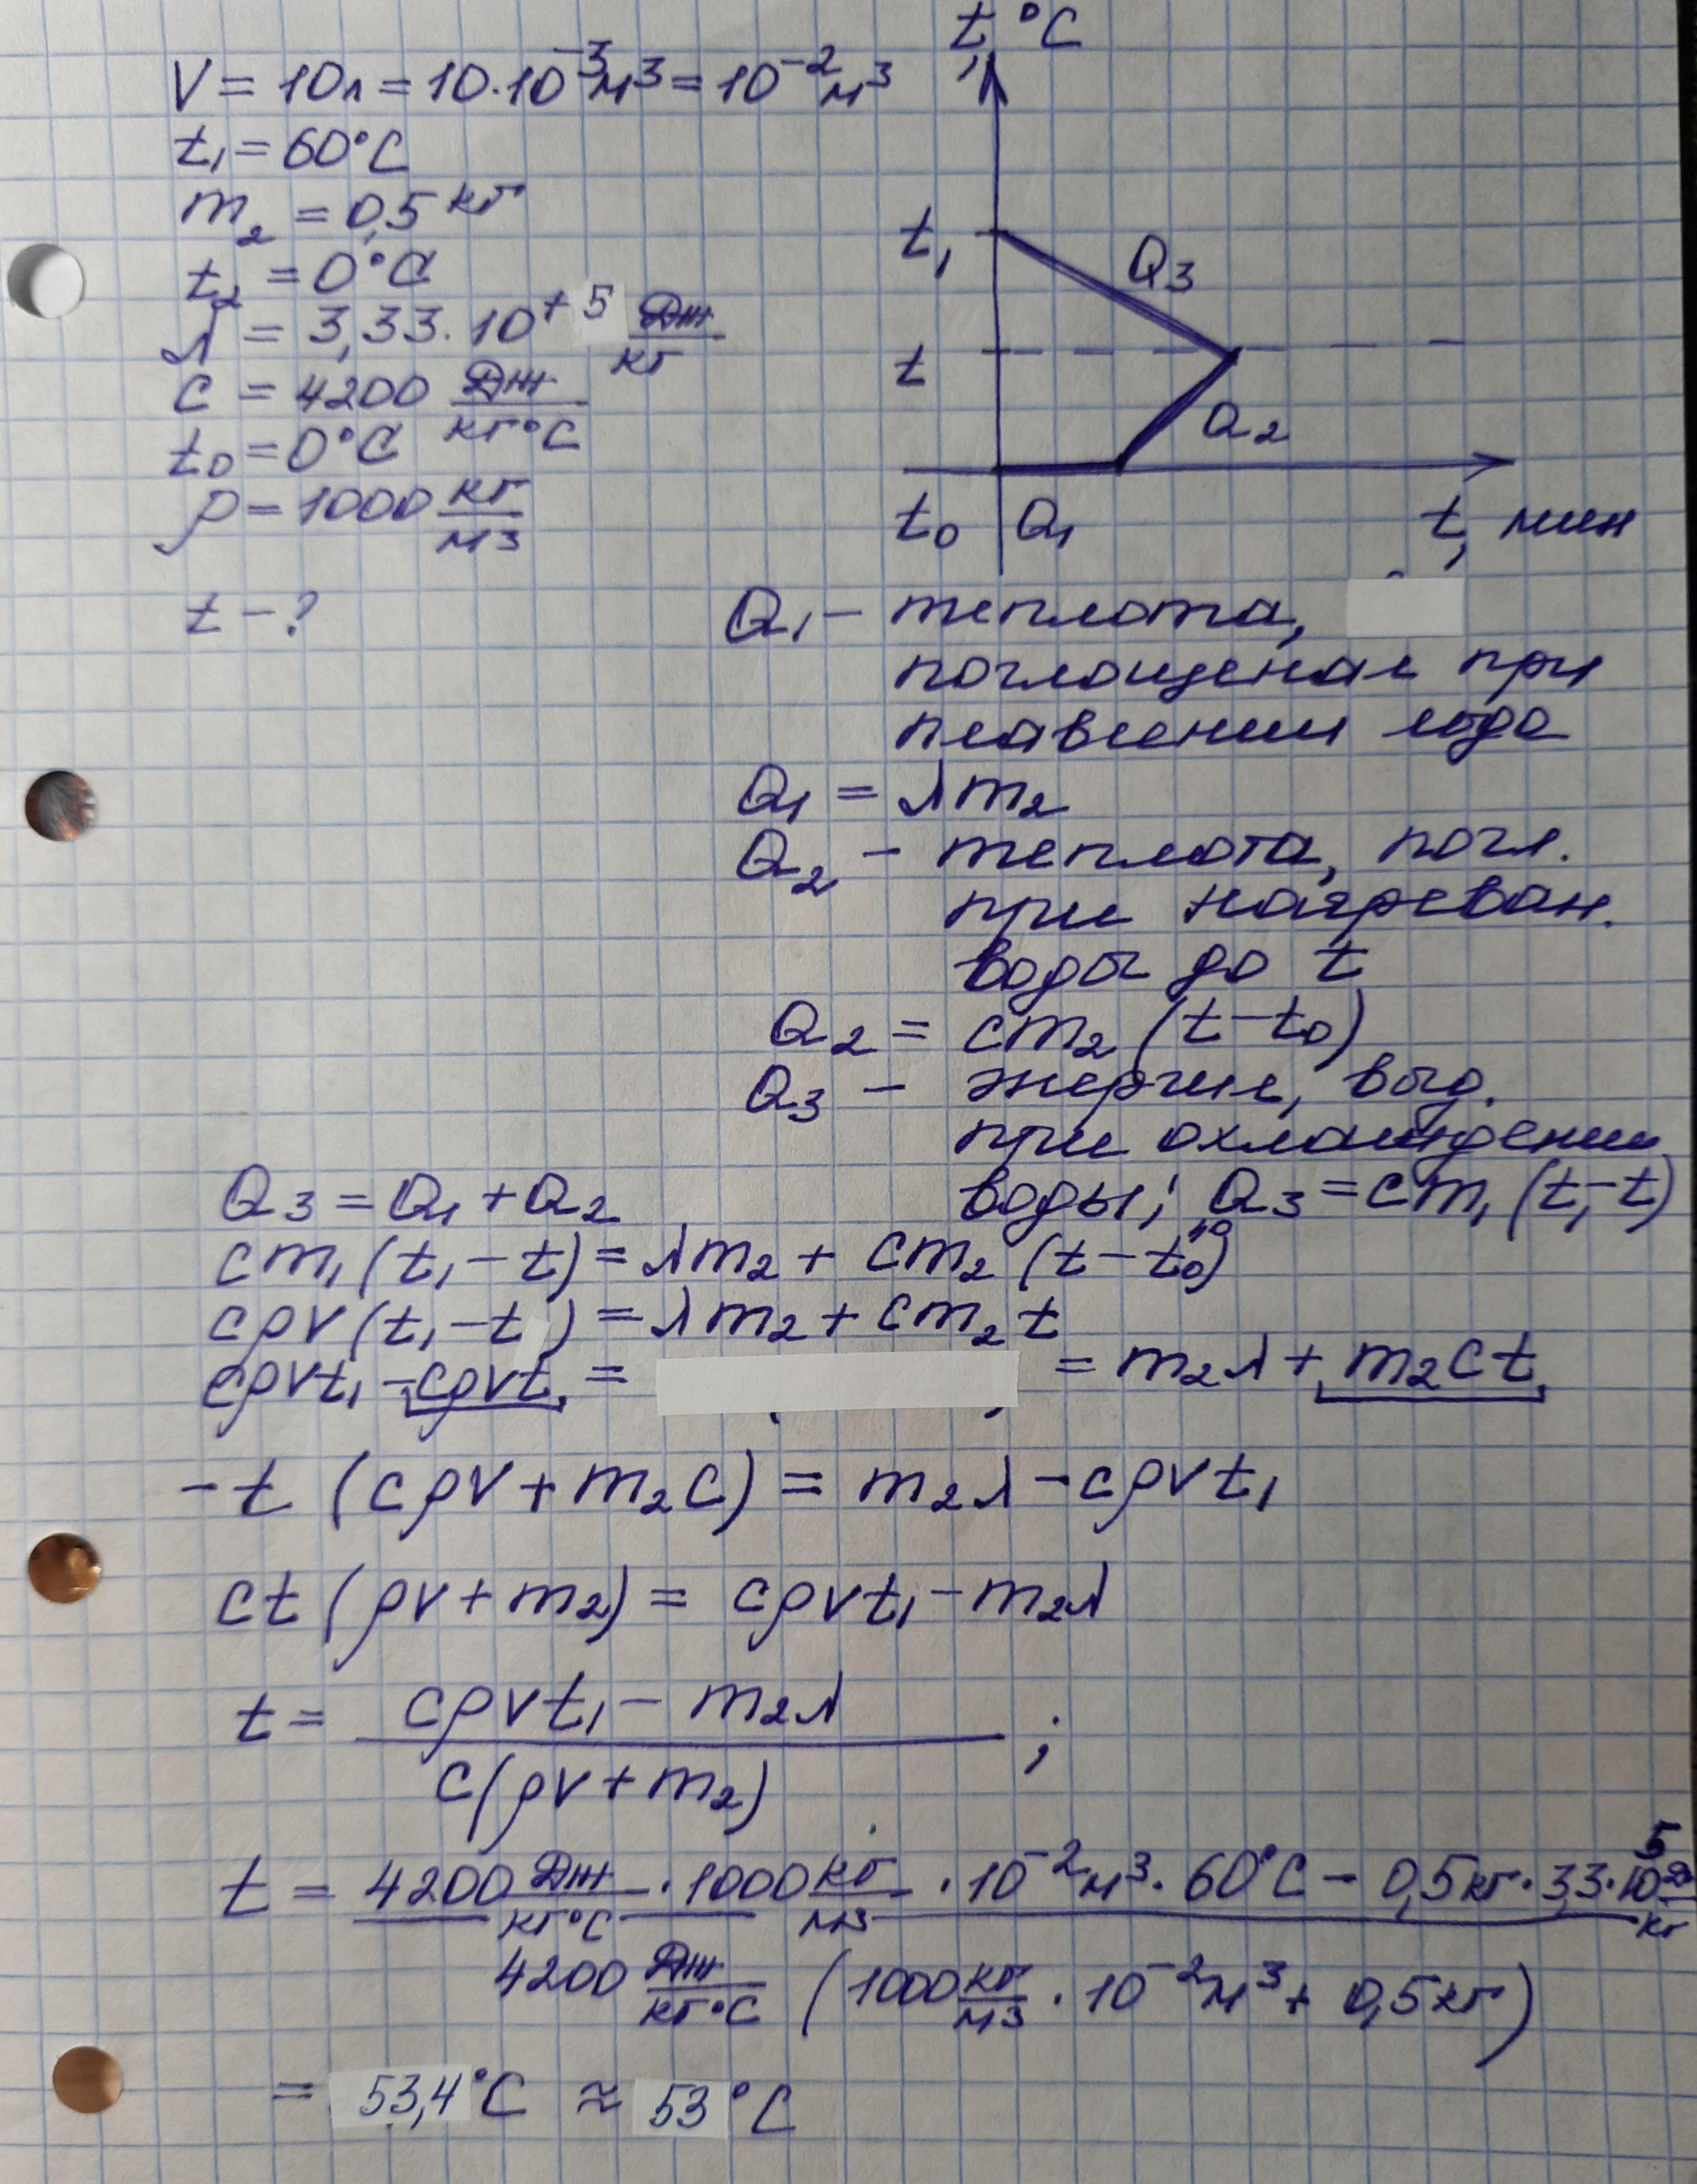 V = 10л = 10·10⁻³м³ = 10⁻²м³
t₁ = 60°C
m₂ = 0,5 кг
t₂ = 0°C
λ = 3,33·10⁺⁵ Дж/кг
c = 4200 Дж/кг°C
t₀ = 0°C
ρ = 1000 кг/м3
t - ?
t, °C
t₁
Q3
t
Q₂
t₀ Q₁ t, мин
Q₁ – теплота,
поглощеная при
плавлении льда
Q₁ = λm₂
Q₂ – теплота, погл.
при нагреван.
воды до t
Q₂ = cm₂ (t-t₀)
Q₃ – энергия, выд.
при охлаждении
воды; Q₃ = cm₁ (t₁-t)
Q₃ = Q₁ + Q₂
cm₁ (t₁ - t) = λm₂ + cm₂ (t - t₀)
cρV (t₁ - t) = λm₂ + cm₂ t
cρVt₁ - cρVt = = m₂λ + m₂ct
-t (cρV + m₂c) = m₂λ - cρVt₁
ct (ρV + m₂) = cρVt₁ - m₂λ
t = cρVt₁ - m₂λ ;
c(ρV + m₂)
t = 4200 Дж/кг°C · 1000 кг/м3 · 10⁻²м³ · 60°C - 0,5кг · 3,3·10⁵ Дж/кг
4200 Дж/кг°C (1000 кг/м3 · 10⁻²м³ + 0,5кг)
= 53,4°C ≈ 53°C